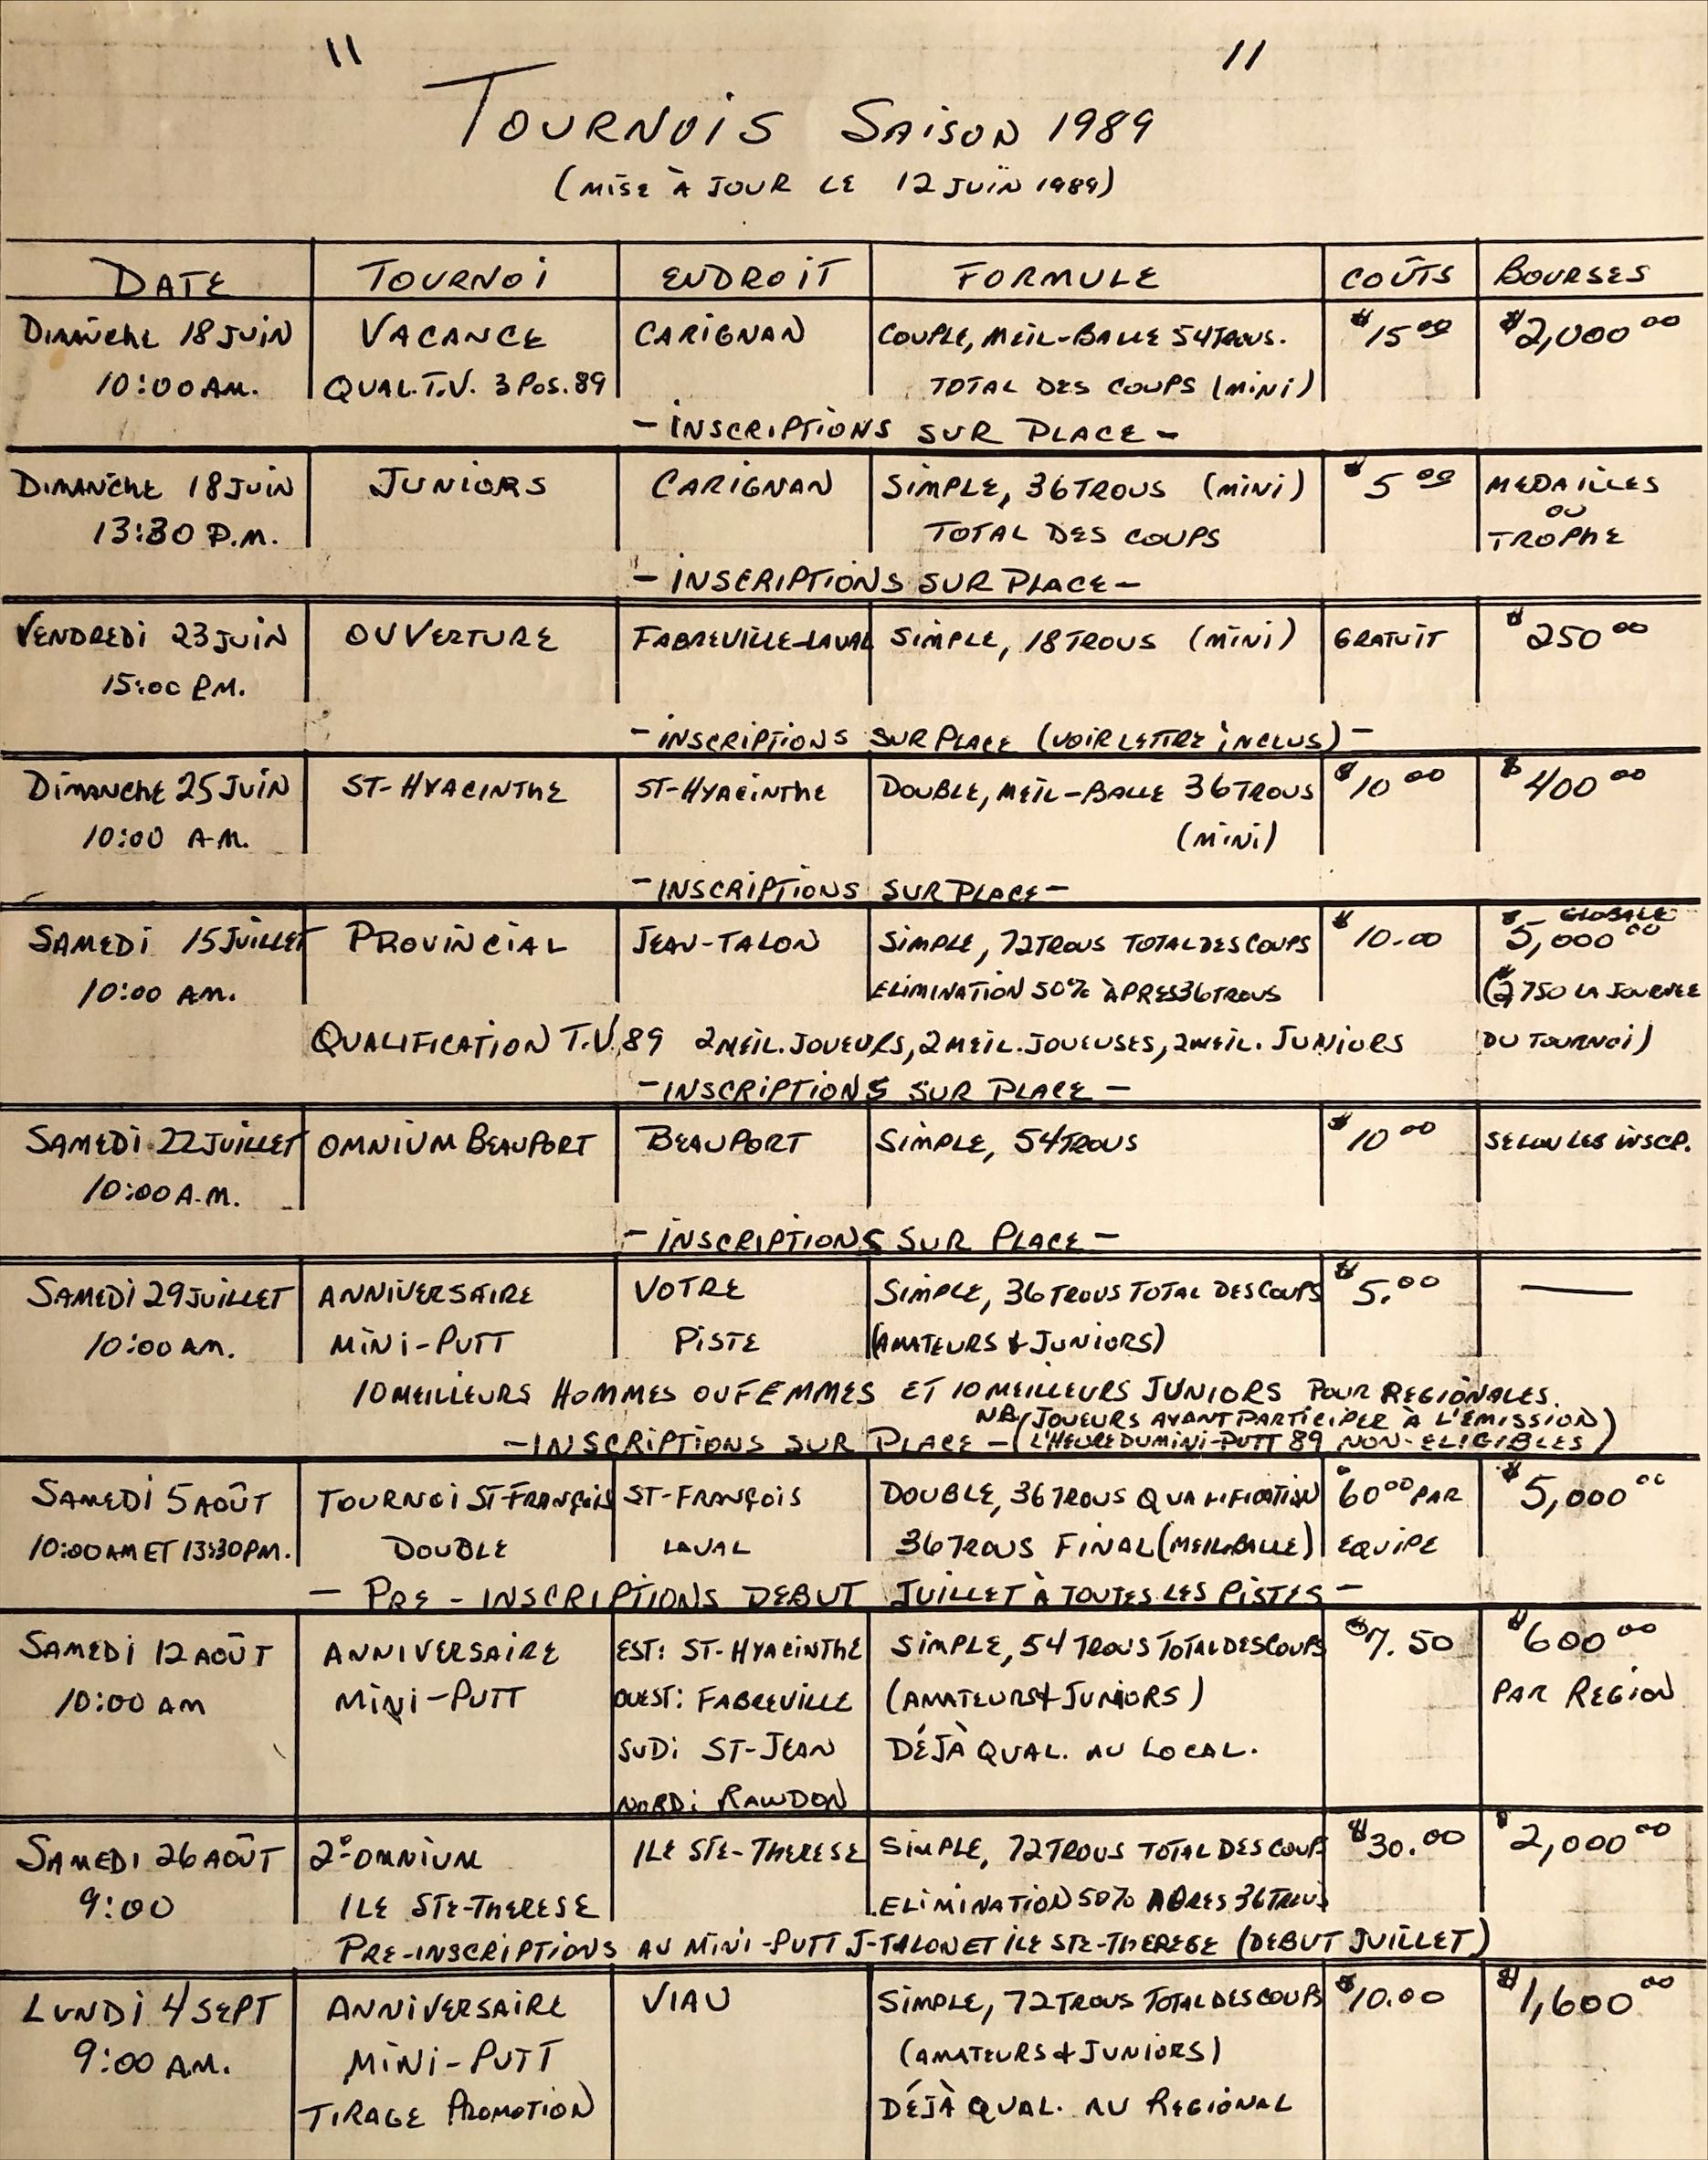 " "
TOURNOIS SAISON 1989
(MISE À JOUR LE 12 JUIN 1989)
DATE TOURNOI ENDROIT FORMULE COÛTS BOURSES
DIMANCHE 18 JUIN VACANCE CARIGNAN COUPLE, MEIL-BALLE 54 TROUS. $15 00 $2,000 00
10:00 AM. QUAL. T.V. 3 POS. 89 TOTAL DES COUPS (MINI)
- INSCRIPTIONS SUR PLACE -
DIMANCHE 18 JUIN JUNIORS CARIGNAN SIMPLE, 36 TROUS (MINI) $5 00 MEDAILLES
OU
13:30 P.M. TOTAL DES COUPS TROPHE
- INSCRIPTIONS SUR PLACE -
VENDREDI 23 JUIN OUVERTURE FABREVILLE-LAVAL SIMPLE, 18 TROUS (MINI) GRATUIT $250 00
15:00 P.M.
- INSCRIPTIONS SUR PLACE (VOIR LETTRE INCLUS) -
DIMANCHE 25 JUIN ST-HYACINTHE ST-HYACINTHE DOUBLE, MEIL-BALLE 36 TROUS $10 00 $400 00
10:00 A.M. (MINI)
- INSCRIPTIONS SUR PLACE -
GLOBALE
SAMEDI 15 JUILLET PROVINCIAL JEAN-TALON SIMPLE, 72 TROUS TOTAL DES COUPS $10.00 $5,000 00
10:00 AM. ELIMINATION 50% ÀPRES 36 TROUS ($2750 LA JOURNEE
QUALIFICATION T.V. 89 2 MEIL. JOUEURS, 2 MEIL. JOUEUSES, 2 MEIL. JUNIORS DU TOURNOI)
- INSCRIPTIONS SUR PLACE -
SAMEDI 22 JUILLET OMNIUM BEAUPORT BEAUPORT SIMPLE, 54 TROUS $10 00 SELON LES INSCP.
10:00 A.M.
- INSCRIPTIONS SUR PLACE -
SAMEDI 29 JUILLET ANNIVERSAIRE VOTRE SIMPLE, 36 TROUS TOTAL DES COUPS $5.00 —
10:00 AM. MINI-PUTT PISTE (AMATEURS & JUNIORS)
10 MEILLEURS HOMMES OU FEMMES ET 10 MEILLEURS JUNIORS POUR REGIONALES.
NB (JOUEURS AYANT PARTICIPER À L'ÉMISSION)
- INSCRIPTIONS SUR PLACE - (L'HEURE DU MINI-PUTT 89 NON-ELIGIBLES)
SAMEDI 5 AOÛT TOURNOI ST-FRANÇOIS ST-FRANÇOIS DOUBLE, 36 TROUS QUALIFICATION $60 00 PAR $5,000 00
10:00 AM ET 13:30 PM. DOUBLE LAVAL 36 TROUS FINAL (MEIL-BALLE) EQUIPE
- PRE-INSCRIPTIONS DEBUT JUILLET À TOUTES LES PISTES -
SAMEDI 12 AOÛT ANNIVERSAIRE EST: ST-HYACINTHE SIMPLE, 54 TROUS TOTAL DES COUPS $7.50 $600 00
10:00 AM MINI-PUTT OUEST: FABREVILLE (AMATEURS & JUNIORS) PAR REGION
SUD: ST-JEAN DÉJÀ QUAL. AU LOCAL.
NORD: RAWDON
SAMEDI 26 AOÛT 2° OMNIUM ILE STE-THERESE SIMPLE, 72 TROUS TOTAL DES COUPS $30.00 $2,000 00
9:00 ILE STE-THERESE ELIMINATION 50% APRES 36 TROUS
PRE-INSCRIPTIONS AU MINI-PUTT J-TALON ET ILE STE-THERESE (DEBUT JUILLET)
LUNDI 4 SEPT ANNIVERSAIRE VIAU SIMPLE, 72 TROUS TOTAL DES COUPS $10.00 $1,600 00
9:00 A.M. MINI-PUTT (AMATEURS & JUNIORS)
TIRAGE PROMOTION DÉJÀ QUAL. AU REGIONAL